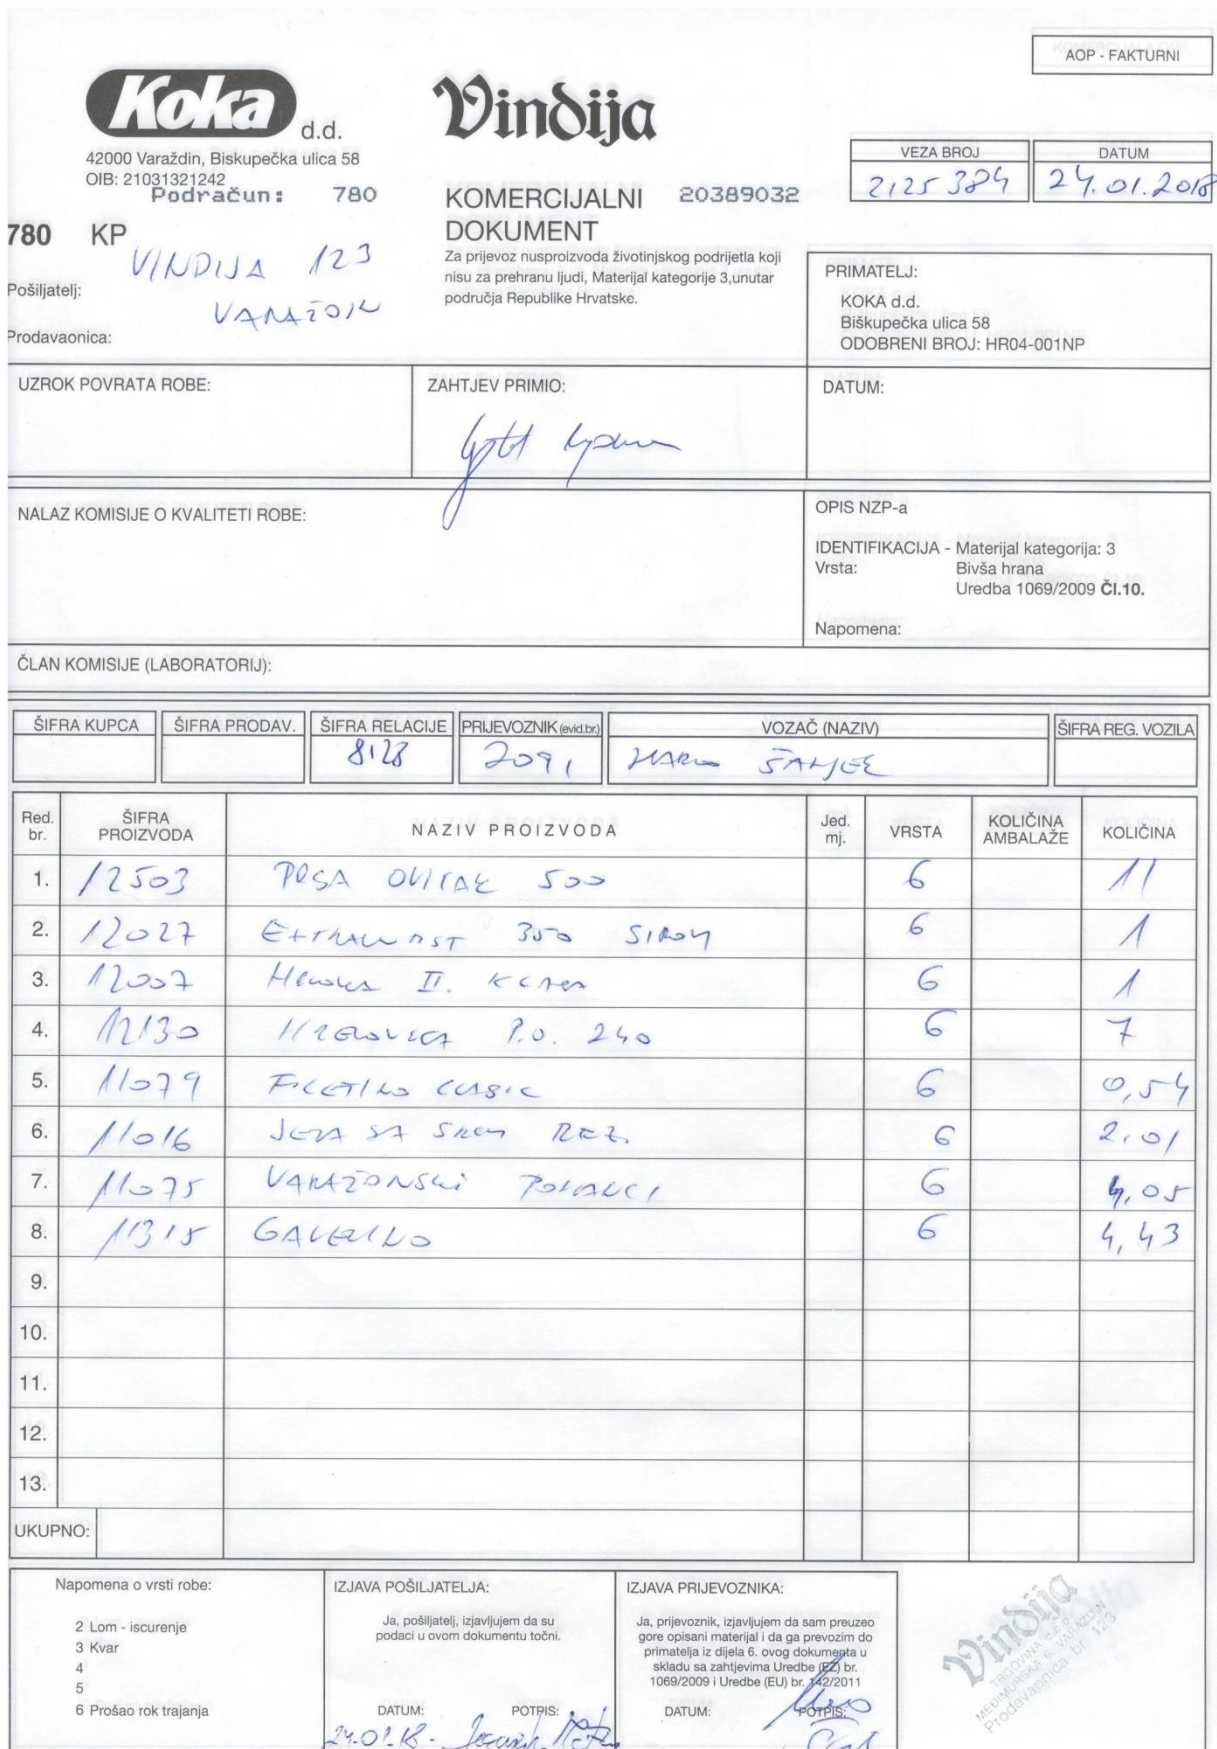 AOP - FAKTURNI
Koka d.d.
Vindija
42000 Varaždin, Biskupečka ulica 58
OIB: 21031321242
Podračun: 780
KOMERCIJALNI DOKUMENT
20389032
VEZA BROJ
2125384
DATUM
24.01.2018
780 KP
VINDIJA 123
Za prijevoz nusproizvoda životinjskog podrijetla koji
nisu za prehranu ljudi, Materijal kategorije 3,unutar
područja Republike Hrvatske.
Pošiljatelj:
Prodavaonica:
PRIMATELJ:
KOKA d.d.
Biškupečka ulica 58
ODOBRENI BROJ: HR04-001NP
UZROK POVRATA ROBE:
ZAHTJEV PRIMIO:
DATUM:
NALAZ KOMISIJE O KVALITETI ROBE:
OPIS NZP-a
IDENTIFIKACIJA - Materijal kategorija: 3
Vrsta: Bivša hrana
Uredba 1069/2009 Čl.10.
Napomena:
ČLAN KOMISIJE (LABORATORIJ):
ŠIFRA KUPCA ŠIFRA PRODAV. ŠIFRA RELACIJE PRIJEVOZNIK (evid.br.) VOZAČ (NAZIV) ŠIFRA REG. VOZILA
8128 2091
Red. br. ŠIFRA PROIZVODA NAZIV PROIZVODA Jed. mj. VRSTA KOLIČINA AMBALAŽE KOLIČINA
1. 12503 500 6 11
2. 12027 350 6 1
3. 12007 II. 6 1
4. 12130 P.O. 240 6 7
5. 11079 6 0,54
6. 11016 SA REZ. 6 2,01
7. 11075 6 4,05
8. 11315 6 4,43
9.
10.
11.
12.
13.
UKUPNO:
Napomena o vrsti robe:
2 Lom - iscurenje
3 Kvar
4
5
6 Prošao rok trajanja
IZJAVA POŠILJATELJA:
Ja, pošiljatelj, izjavljujem da su
podaci u ovom dokumentu točni.
DATUM: POTPIS:
24.01.18.
IZJAVA PRIJEVOZNIKA:
Ja, prijevoznik, izjavljujem da sam preuzeo
gore opisani materijal i da ga prevozim do
primatelja iz dijela 6. ovog dokumenta u
skladu sa zahtjevima Uredbe (EZ) br.
1069/2009 i Uredbe (EU) br. 142/2011
DATUM: POTPIS:
Vindija
TRGOVINA d.o.o.
MEĐIMURSKA 6, VARAŽDIN
Prodavaonica br. 123